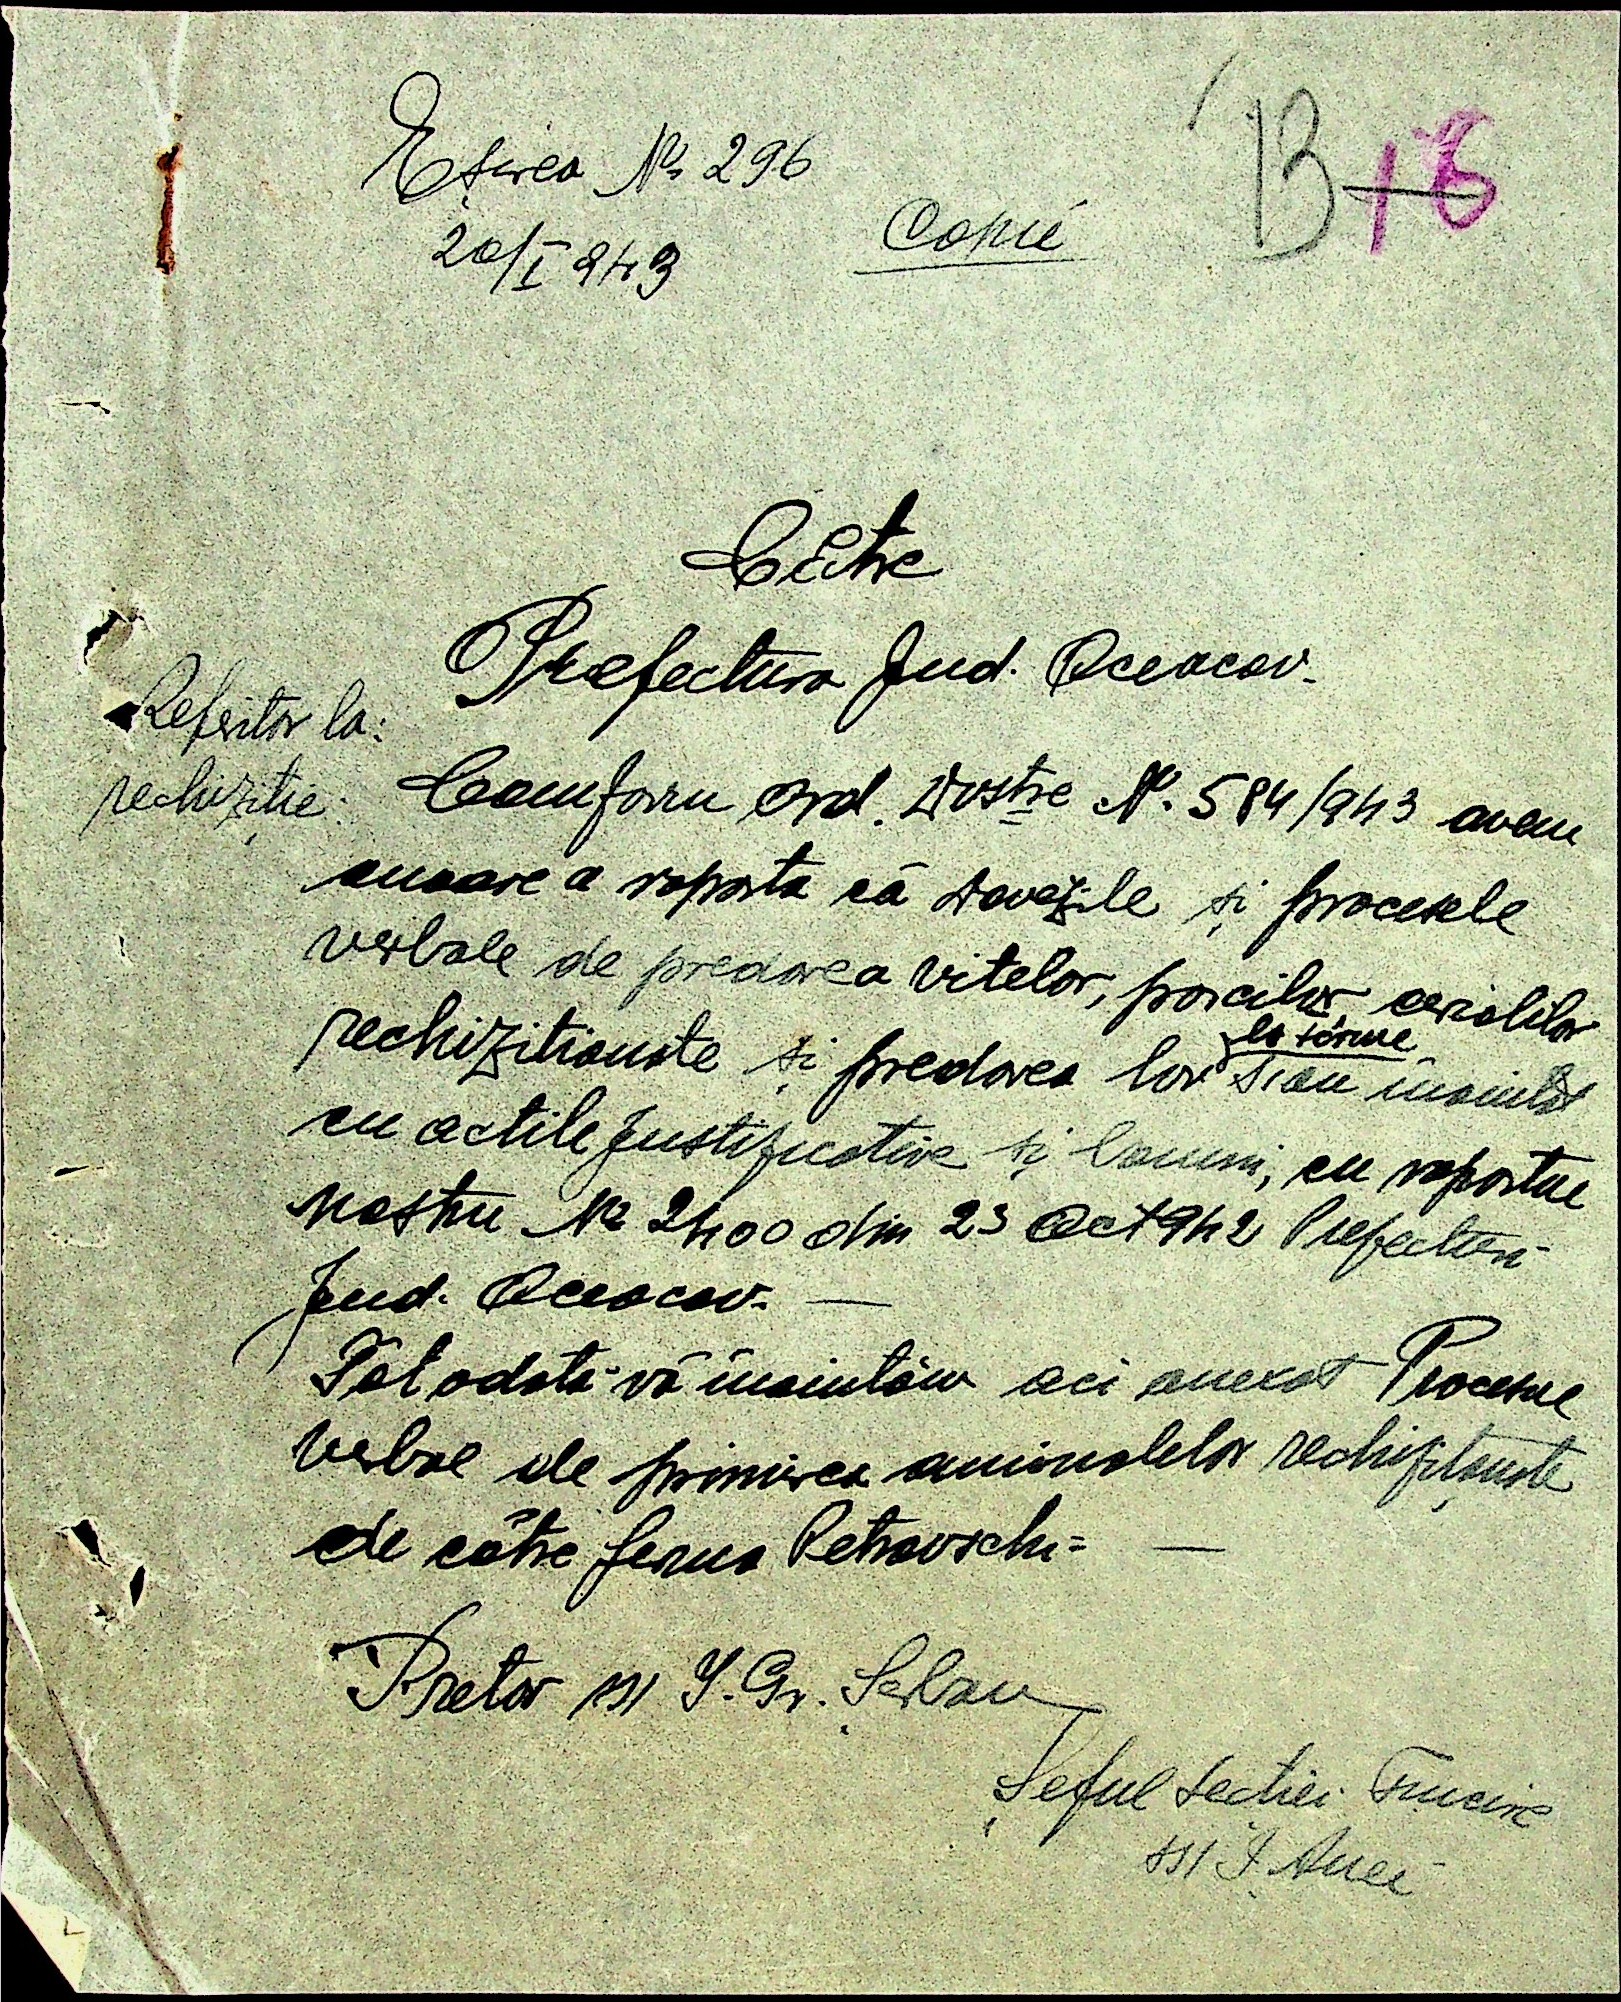 Eșirea № 296
20/I 943
Copie
13 16
Către
Prefectura Jud. Oceacov.
Referitor la:
rechiziție:
Comform Ord. Dvstre №. 584/943 avem
onoare a raporta că dovezile și procesele
verbale de predarea vitelor, porcilor cerialilor
rechiziționate și predarea lor la ferme s'au inaintat
cu actile justificative și banni, cu raportul
nostru № 2400 din 23 Oct 942 Prefecturi
Jud. Oceacov. —
Tot odată vă inaintăm aci anexat Procesul
verbal de primirea animalelor rechiziționate
de către ferma Petrovschi= —
Pretor ss/ I. Gr. Șerban
Șeful secției
ss/ I.